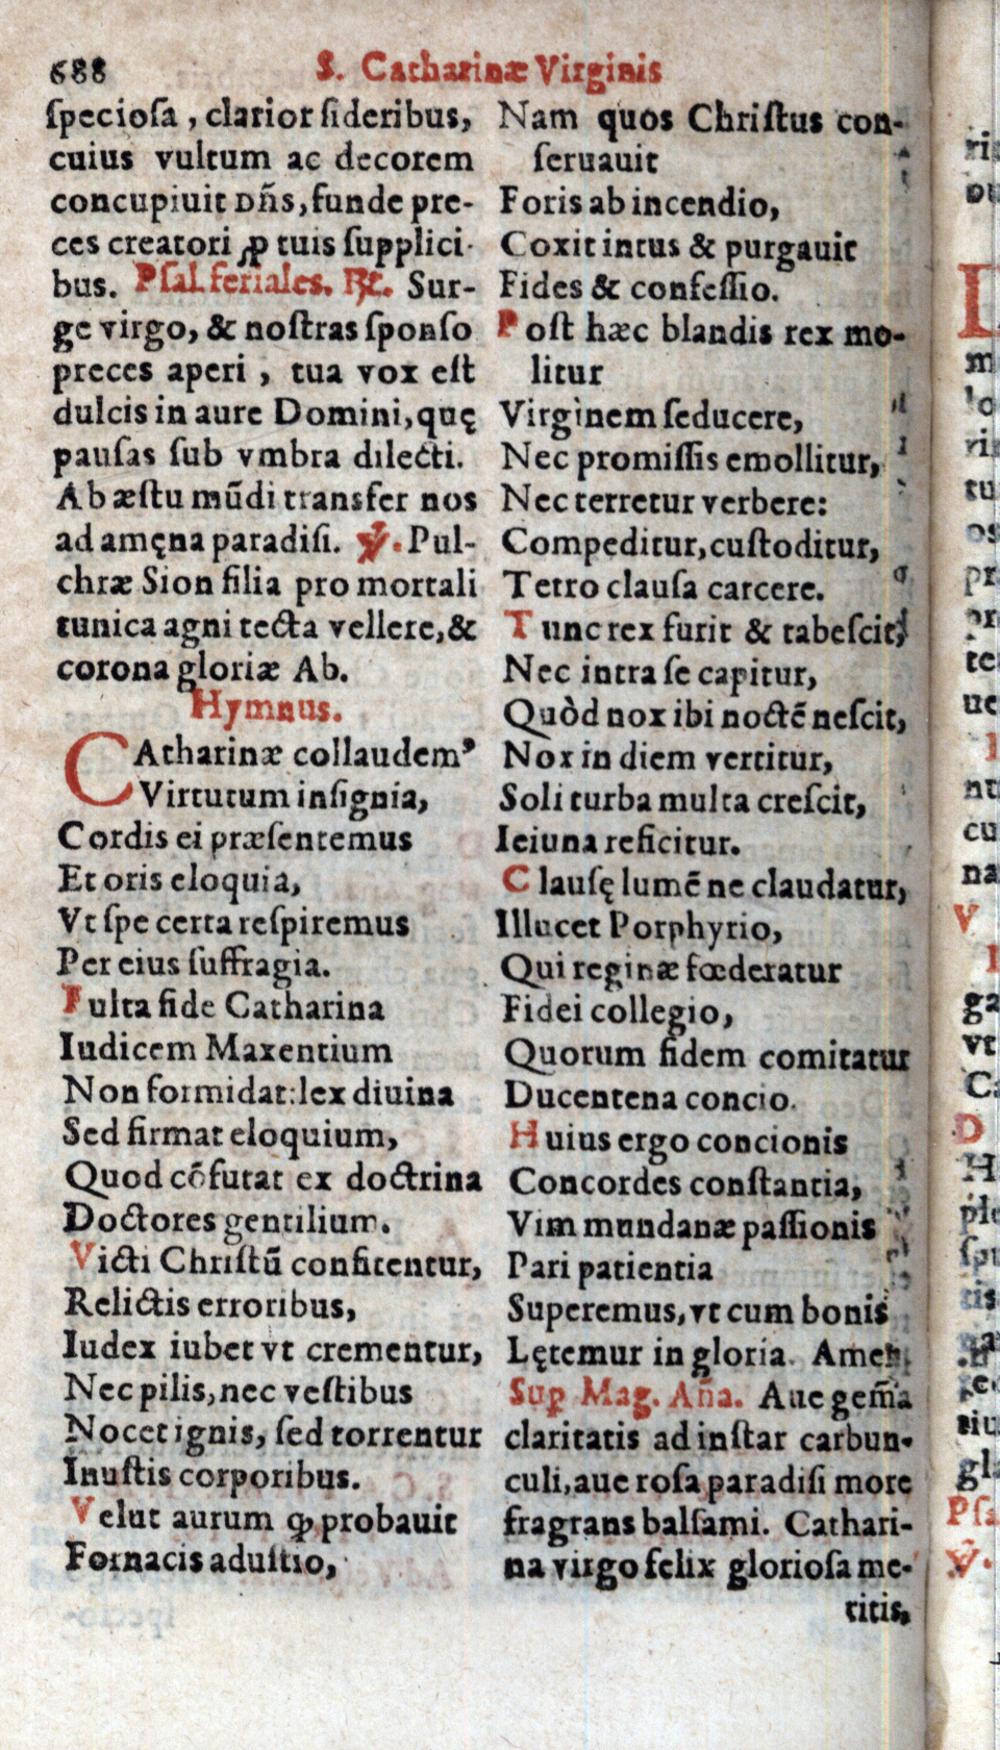 688
S. Catharinæ Virginis
ſpecioſa, clarior ſideribus,
cuius vultum ac decorem
concupiuit Dñs, funde pre-
ces creatori ꝓ tuis ſupplici-
bus. Pſal. feriales. ℟. Sur-
ge virgo, & noſtras ſponſo
preces aperi, tua vox eſt
dulcis in aure Domini, quę
pauſas ſub vmbra dilecti.
Ab æſtu mũdi transfer nos
ad amęna paradiſi. ℣. Pul-
chræ Sion filia pro mortali
tunica agni tecta vellere, &
corona gloriæ Ab.
Hymnus.
CAtharinæ collaudemꝰ
Virtutum inſignia,
Cordis ei præſentemus
Et oris eloquia,
Vt ſpe certa reſpiremus
Per eius ſuffragia.
Fulta fide Catharina
Iudicem Maxentium
Non formidat: lex diuina
Sed firmat eloquium,
Quod cõfutat ex doctrina
Doctores gentilium.
Victi Chriſtũ confitentur,
Relictis erroribus,
Iudex iubet vt crementur,
Nec pilis, nec veſtibus
Nocet ignis, ſed torrentur
Inuſtis corporibus.
Velut aurum ꝙ probauit
Fornacis aduſtio,
Nam quos Chriſtus con-
ſeruauit
Foris ab incendio,
Coxit intus & purgauit
Fides & confeſſio.
Poſt hæc blandis rex mo-
litur
Virginem ſeducere,
Nec promiſſis emollitur,
Nec terretur verbere:
Compeditur, cuſtoditur,
Tetro clauſa carcere.
Tunc rex furit & tabeſcit,
Nec intra ſe capitur,
Quòd nox ibi noctẽ neſcit,
Nox in diem vertitur,
Soli turba multa creſcit,
Ieiuna reficitur.
Clauſę lumẽ ne claudatur,
Illucet Porphyrio,
Qui reginæ fœderatur
Fidei collegio,
Quorum fidem comitatur
Ducentena concio.
Huius ergo concionis
Concordes conſtantia,
Vim mundanæ paſſionis
Pari patientia
Superemus, vt cum bonis
Lętemur in gloria. Amen.
Sup Mag. Aña. Aue gem̃a
claritatis ad inſtar carbun-
culi, aue roſa paradiſi more
fragrans balſami. Cathari-
na virgo felix glorioſa me-
ritis,